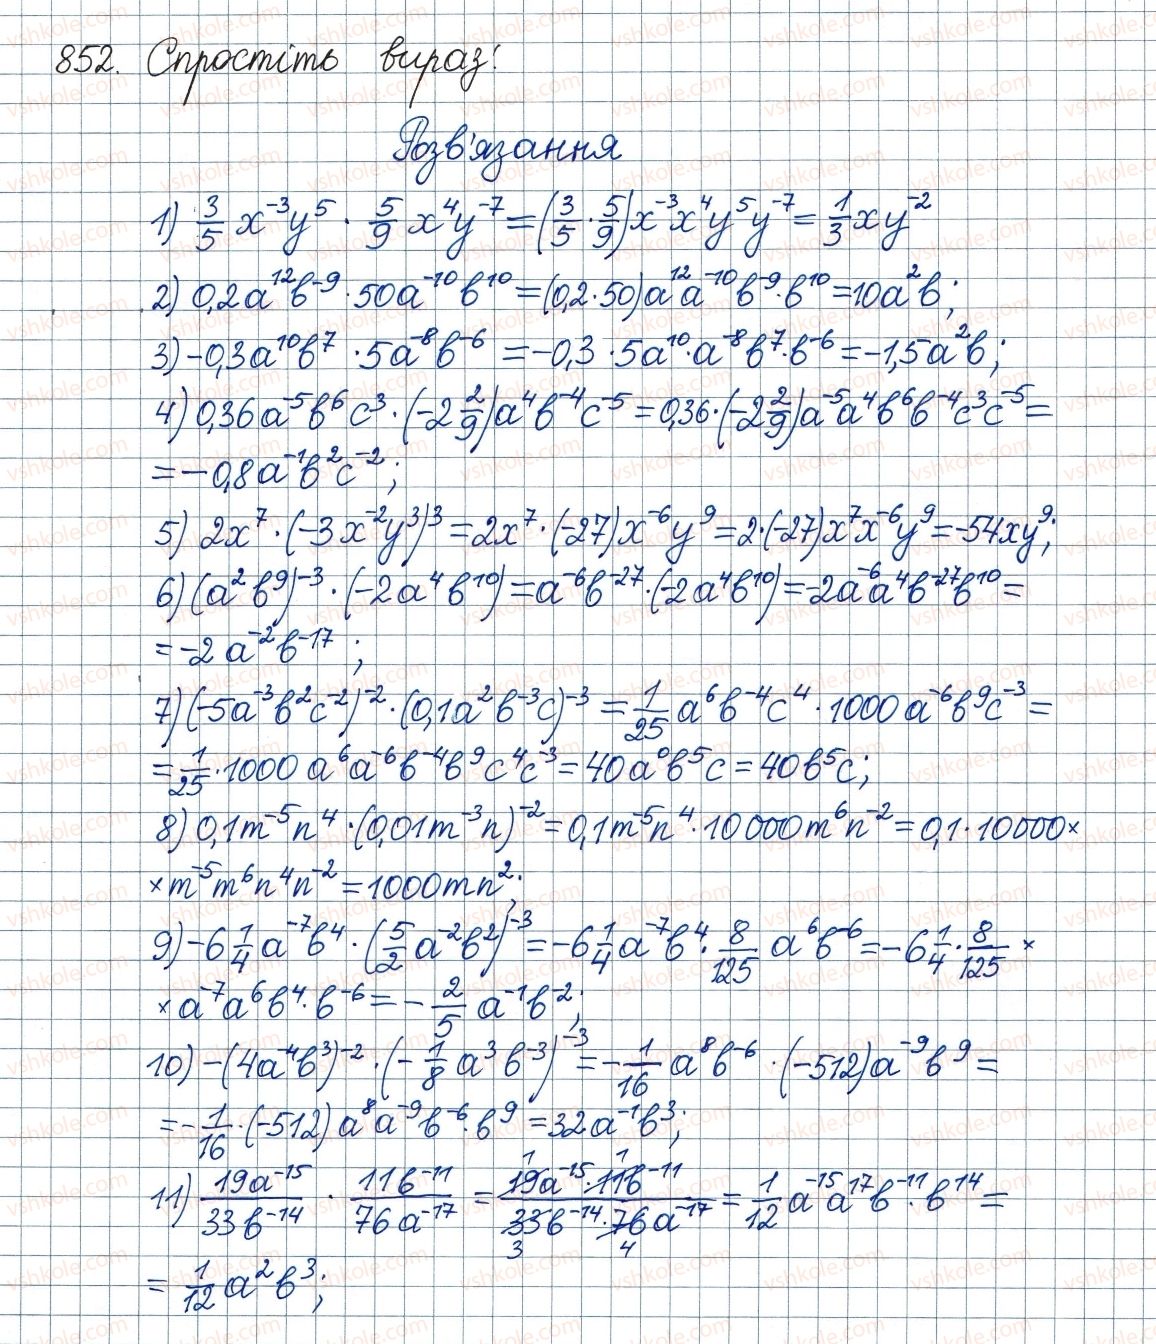 852. Спростіть вираз:
Розв'язання
1) 3/5 x⁻³y⁵ · 5/9 x⁴y⁻⁷ = (3/5 · 5/9) x⁻³x⁴y⁵y⁻⁷ = 1/3 xy⁻²
2) 0,2a¹²b⁻⁹ · 50a⁻¹⁰b¹⁰ = (0,2 · 50)a¹²a⁻¹⁰b⁻⁹ · b¹⁰ = 10a²b;
3) -0,3a¹⁰b⁷ · 5a⁻⁸b⁻⁶ = -0,3 · 5a¹⁰ · a⁻⁸b⁷ · b⁻⁶ = -1,5a²b;
4) 0,36a⁻⁵b⁶c³ · (-2 2/9)a⁴b⁻⁴c⁻⁵ = 0,36 · (-2 2/9)a⁻⁵a⁴b⁶b⁻⁴c³c⁻⁵ =
= -0,8a⁻¹b²c⁻²;
5) 2x⁷ · (-3x⁻²y³)³ = 2x⁷ · (-27)x⁻⁶y⁹ = 2 · (-27)x⁷x⁻⁶y⁹ = -54xy⁹;
6) (a²b⁹)⁻³ · (-2a⁴b¹⁰) = a⁻⁶b⁻²⁷ · (-2a⁴b¹⁰) = -2a⁻⁶a⁴b⁻²⁷b¹⁰ =
= -2a⁻²b⁻¹⁷;
7) (-5a⁻³b²c⁻²)⁻² · (0,1a²b⁻³c)⁻³ = 1/25 a⁶b⁻⁴c⁴ · 1000a⁻⁶b⁹c⁻³ =
= 1/25 · 1000a⁶a⁻⁶b⁻⁴b⁹c⁴c⁻³ = 40a⁰b⁵c = 40b⁵c;
8) 0,1m⁻⁵n⁴ · (0,01m⁻³n)⁻² = 0,1m⁻⁵n⁴ · 10000m⁶n⁻² = 0,1 · 10000 ×
× m⁻⁵m⁶n⁴n⁻² = 1000mn²;
9) -6 1/4 a⁻⁷b⁴ · (5/2 a⁻²b²)⁻³ = -6 1/4 a⁻⁷b⁴ · 8/125 a⁶b⁻⁶ = -6 1/4 · 8/125 ×
× a⁻⁷a⁶b⁴ · b⁻⁶ = -2/5 a⁻¹b⁻²;
10) -(4a⁻⁴b³)⁻² · (-1/8 a³b⁻³)⁻³ = -1/16 a⁸b⁻⁶ · (-512)a⁻⁹b⁹ =
= -1/16 · (-512)a⁸a⁻⁹b⁻⁶ · b⁹ = 32a⁻¹b³;
11) 19a⁻¹⁵/33b⁻¹⁴ · 11b⁻¹¹/76a⁻¹⁷ = 19a⁻¹⁵ · 11b⁻¹¹/33b⁻¹⁴ · 76a⁻¹⁷ = 1/12 a⁻¹⁵a¹⁷b⁻¹¹ · b¹⁴ =
= 1/12 a²b³;
vshkole.com